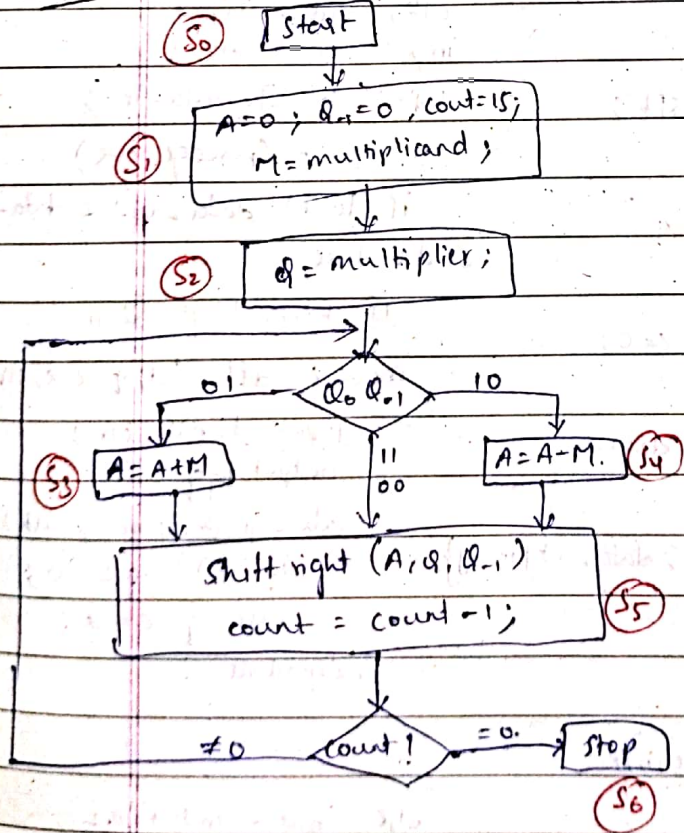 S0
start
A=0 ; Q-1=0 , cout=15;
M= multiplicand ;
S1
Q = multiplier ;
S2
Q0 Q-1
01
10
11
00
A= A+M
S3
A= A-M.
S4
Shift right (A, Q, Q-1)
count = count -1;
S5
count !
≠0
= 0.
stop
S6